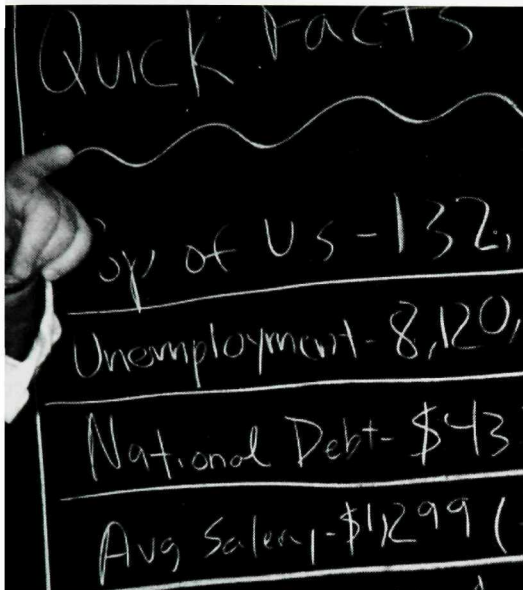 Quick Facts
Pop of US - 132,
Unemployment - 8,120,
National Debt - $43
Avg Salery - $1,299 (